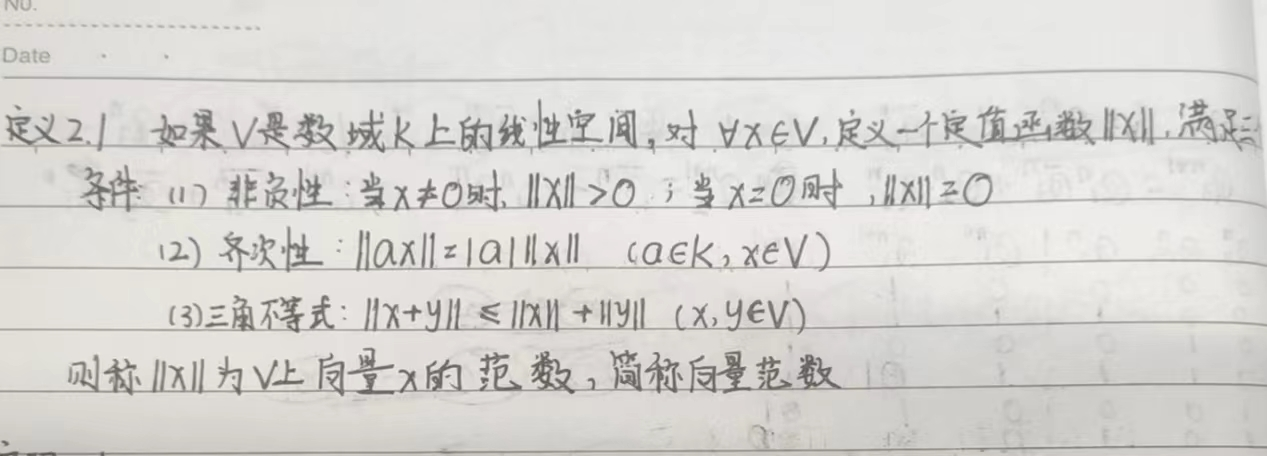 No.
Date
定义2.1 如果V是数域K上的线性空间,对∀x∈V,定义一个定值函数||x||,满足三
条件 (1) 非负性:当x≠0时,||x||>0;当x=0时,||x||=0
(2) 齐次性:||ax||=|a| ||x|| (a∈K,x∈V)
(3) 三角不等式:||x+y||≤||x||+||y|| (x,y∈V)
则称||x||为V上向量x的范数,简称向量范数